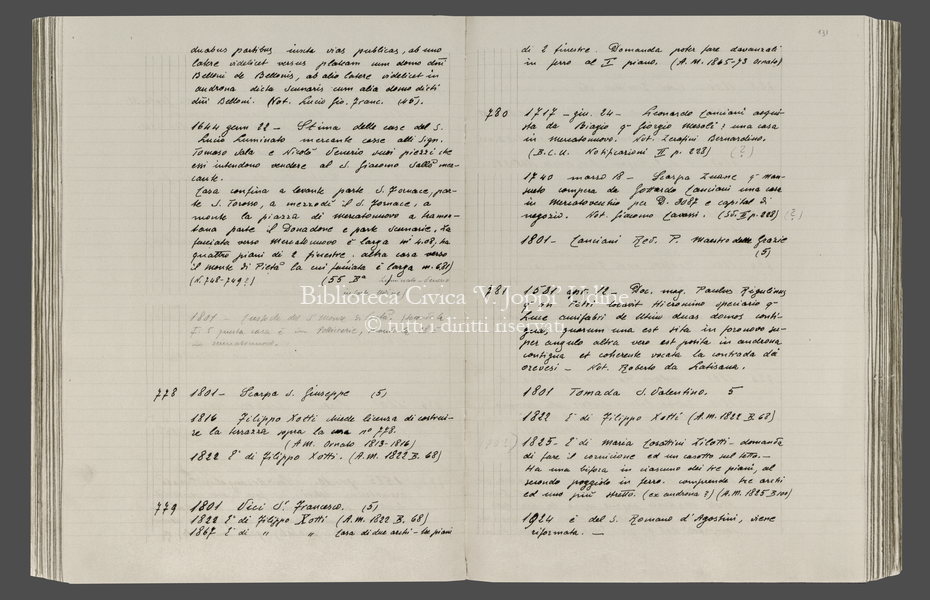 duabus partibus iuxta vias publicas, ab uno
latere videlicet versus plateam cum domo dni
Belloni de Bellonis, ab alio latere videlicet in
androna dicta scunaris cum alia domo dicti
dni Belloni. Not. Lucio Gio. Franc. (45).
1644 genn 22 - Stima delle case del S.
Lucio Luminato mercante cosse alli Sign.
Tomaso Sala e Nicolò Venerio suoi piezzi che
essi intendono vendere al S. Giacomo mer-
cante.
Casa confina a levante parte S. Fornace, par-
te S. Torosso, a mezzodì il S. Fornace, a
monte la piazza di Mercatonuovo a tramon-
tana parte il Donadone e parte Scunarie. La
facciata verso Mercatonuovo è larga m. 4.08, ha
quattro piani di 2 finestre. altra casa verso
il monte di Pietà la cui facciata è larga m. 6.81)
(N. 748-749?) (55 Bª
1801 -
in mercatonuovo.
778 1801 - Scarpa S. Giuseppe (5)
1816 Filippo Xotti chiede licenza di costrui-
re la terrazza sopra la nº 778.
(A.M. Ornato 1813-1816)
1822 E' di Filippo Xotti. (A.M. 1822 B. 68)
779 1801 Vici S. Francesco. (5)
1822 E' di Filippo Xotti (A.M. 1822 B. 68)
1867 E' di " " Casa di due archi - tre piani
131
di 2 finestre. Domanda poter fare davanzali
in ferro al I piano. (A.M. 1865-73 Ornato)
780 1717 - giu. 24 - Leonardo Canciani acqui-
sta da Biagio q Giorgio Mesoli? una casa
in Mercatonuovo. Not. Zerafini Bernardino.
(B.C.U. Notificazioni II p. 228) (?)
1740 marzo 18 - Scarpa Zuane q man-
sueto compera da Gottardo Canciani una casa
in Mercatovecchio per D. 3087 e capital di
negozio. Not. Giacomo Cavassi. (St. II p. 228) (?)
1801 - Canciani Red. P. Maestro delle Grazie
(5)
781 1531 apr. 12 - Doc. mag. Paulus Regulinus
q locavit Hieronimo speciario q
Luce aurifabri de Utino duas domos conti-
guas, quarum una est sita in foronovo su-
per angulo altra vero est posita in androna
contigua et coherente vocata la contrada di
orevesi - Not. Roberto da Latisana.
1801 Tomada S. Valentino. 5
1822 E' di Filippo Xotti (A.M. 1822 B. 68)
1825 - E' di Maria Cosattini Zilotti - domanda
di fare il cornicione ed un casotto sul tetto. -
Ha una bifora in ciascuno dei tre piani, al
secondo poggiolo in ferro. comprende tre archi
ed uno più stretto. (ex androna?) (A.M. 1825 B 100)
1924 è del S. Romano d'Agostini, viene
riformata. -
Biblioteca Civica "V. Joppi" Udine
© tutti i diritti riservati